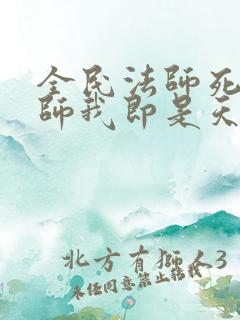 全民法師死
師我即是天
北方有獅人3
未經同意禁止轉載